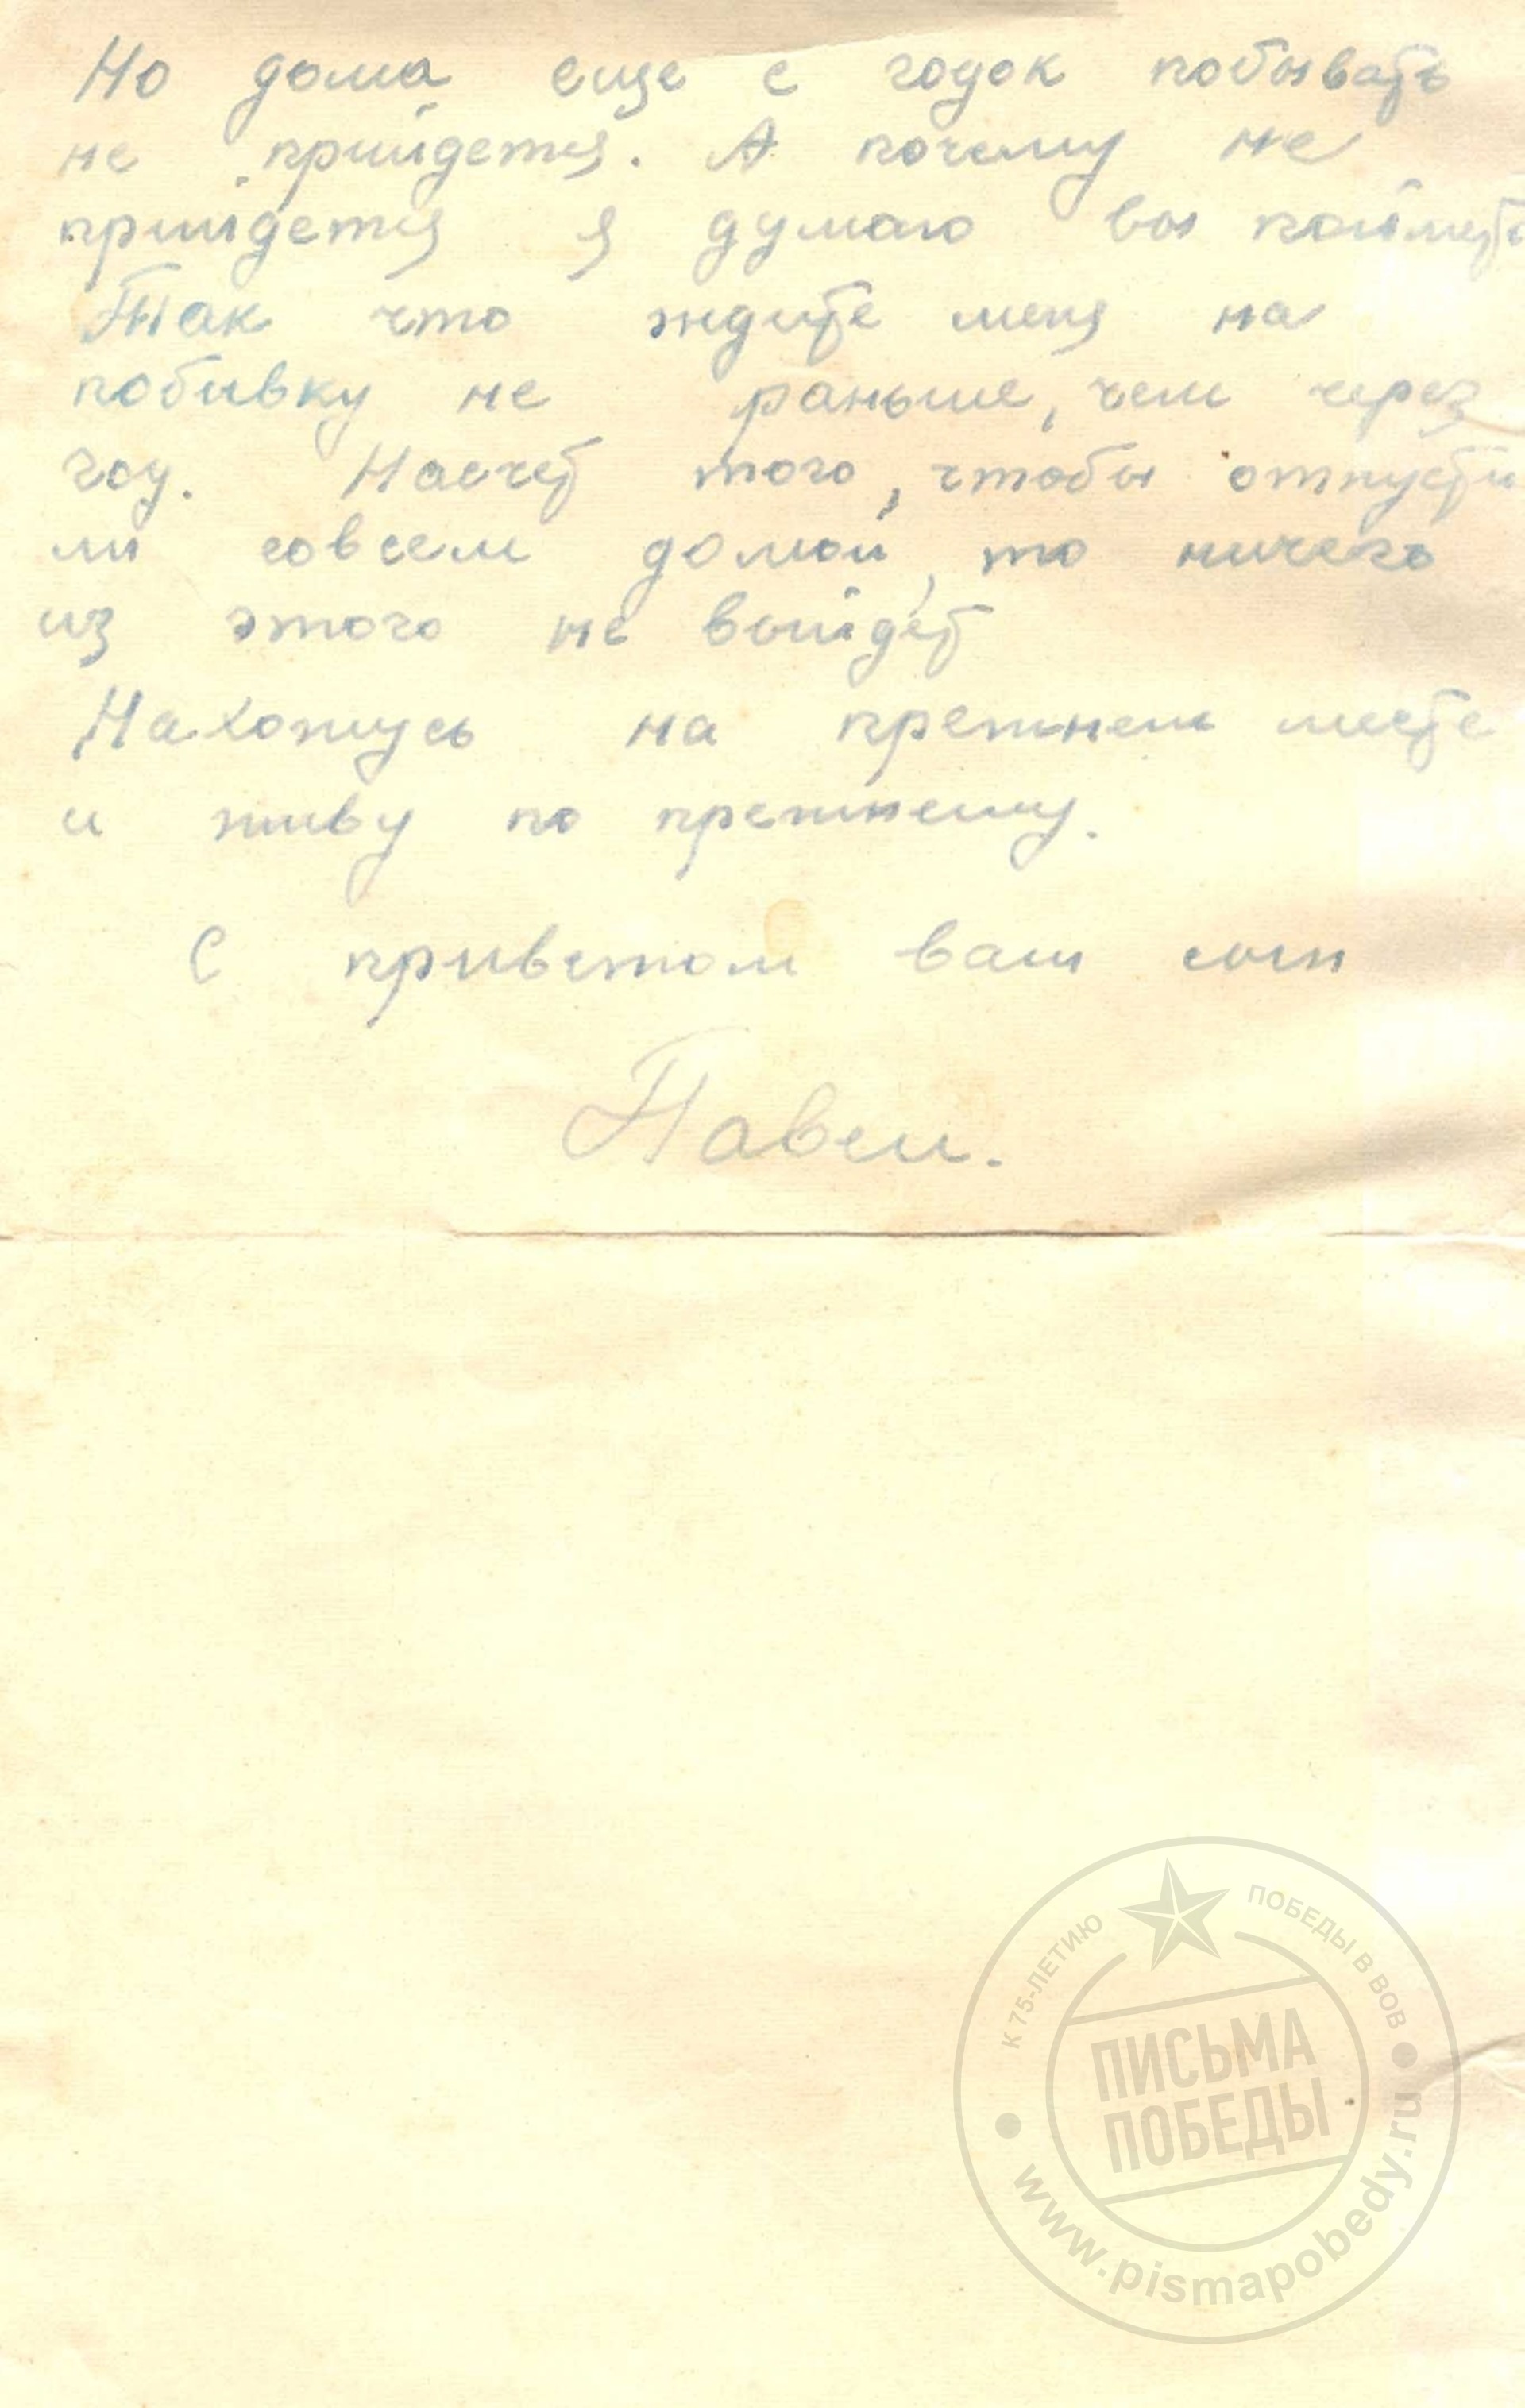 Но дома еще с годок побывать
не прийдется. А почему не
прийдется я думаю вы поймете
Так что ждите меня на
побивку не раньше, чем через
год. Насчет того, чтобы отпусти
ли совсем домой, то ничего
из этого не выйдет
Нахожусь на прежнем месте
и живу по прежнему.
С приветом ваш сын
Павел.
К 75-ЛЕТИЮ ПОБЕДЫ В ВОВ
ПИСЬМА
ПОБЕДЫ
www.pismapobedy.ru